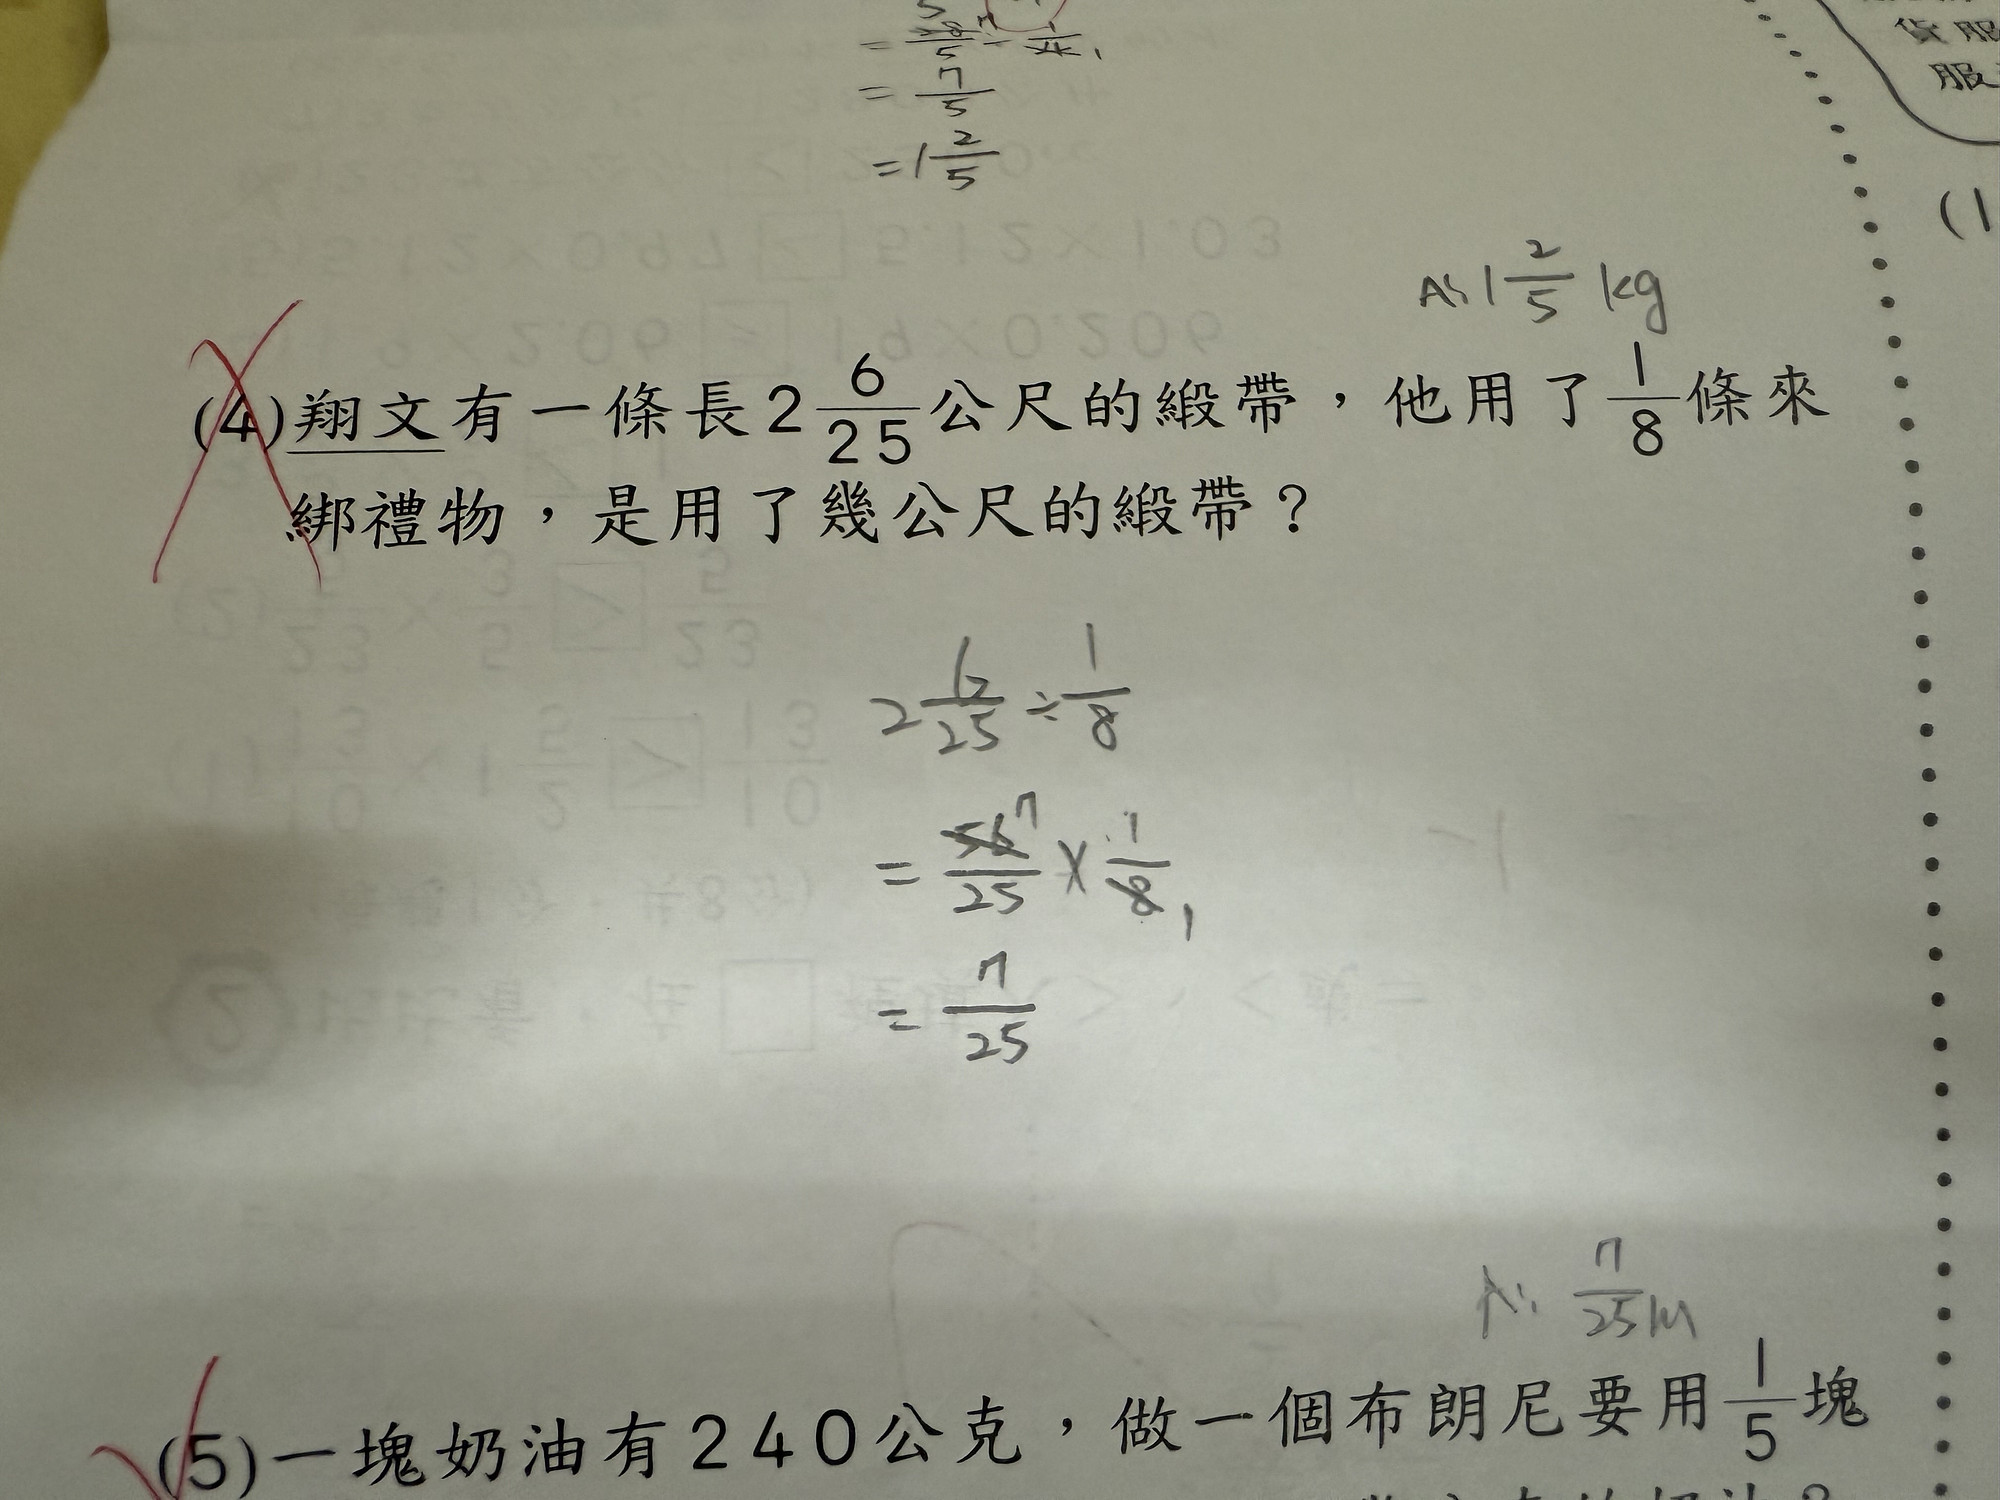 = 7/5
= 1 2/5
A: 1 2/5 kg
(4)翔文有一條長2 6/25公尺的緞帶，他用了1/8條來
綁禮物，是用了幾公尺的緞帶？
2 6/25 ÷ 1/8
= 56 7/25 × 1/8 1
= 7/25
A: 7/25 M
(5)一塊奶油有240公克，做一個布朗尼要用1/5塊
貨服
服
(1